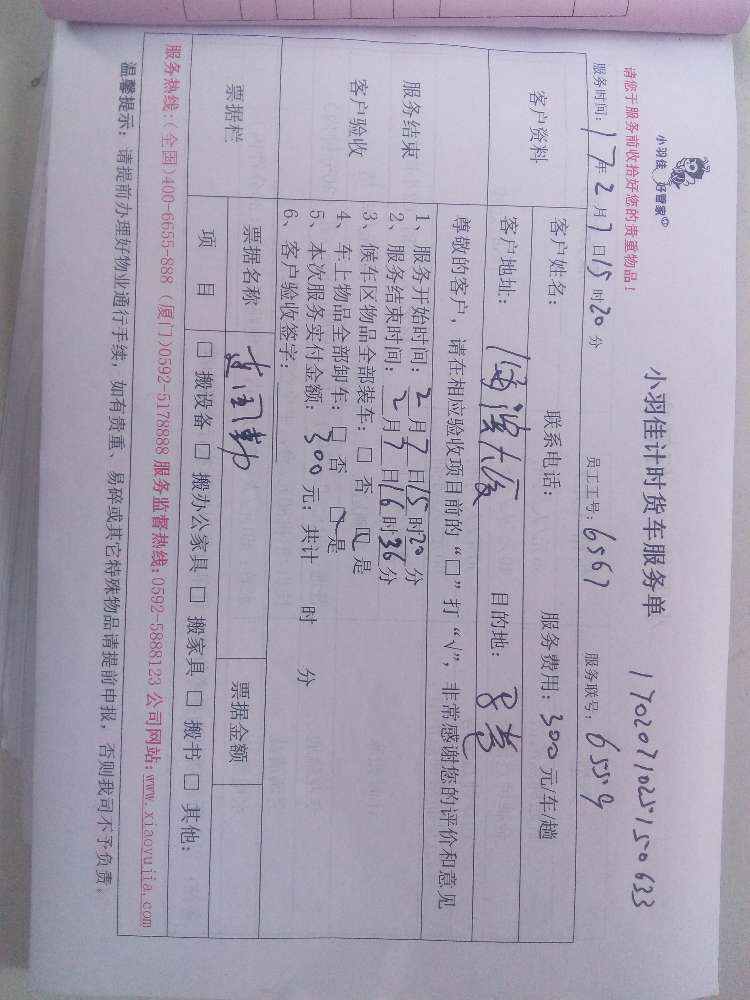 小羽佳 好管家
小羽佳计时货车服务单 1702071025150633
请您于服务前收拾好您的贵重物品！
服务时间：17年2月7日15时20分 员工工号：6567 服务联号：6559
客户资料
客户姓名： 联系电话： 服务费用：300元/车/趟
客户地址： 目的地：
尊敬的客户，请在相应验收项目前的“□”打“√”，非常感谢您的评价和意见
服务结束
客户验收
1、服务开始时间：2月7日15时20分
2、服务结束时间：2月7日16时36分
3、候车区物品全部装车：□否 □是
4、车上物品全部卸车：□否 □是
5、本次服务实付金额：300元；共计 时 分
6、客户验收签字：
票据栏 票据名称 票据金额
项 目 □搬设备 □搬办公家具 □搬家具 □搬书 □其他：
服务热线：(全国)400-6655-888 (厦门)0592-5178888 服务监督热线：0592-5888123 公司网站：www.xiaoyujia.com
温馨提示：请提前办理好物业通行手续，如有贵重、易碎或其它特殊物品请提前申报，否则我司不予负责。